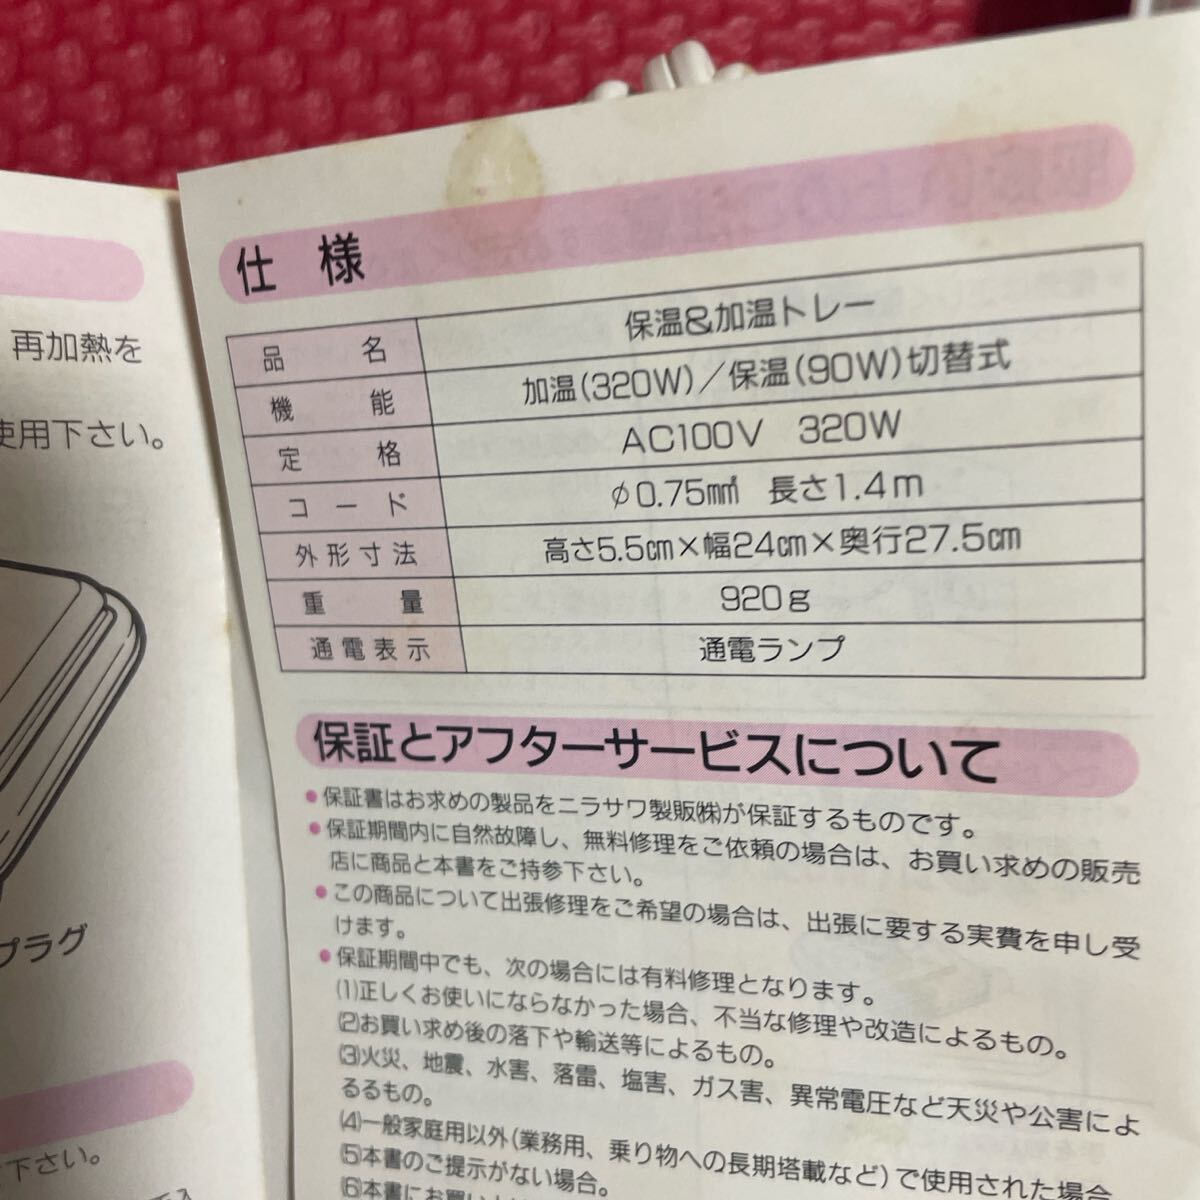 再加熱を
使用下さい。
プラグ
下さい。
仕 様
品 名 保温&加温トレー
機 能 加温(320W)/保温(90W)切替式
定 格 AC100V 320W
コード φ0.75㎟ 長さ1.4m
外形寸法 高さ5.5㎝×幅24㎝×奥行27.5㎝
重 量 920g
通電表示 通電ランプ
保証とアフターサービスについて
●保証書はお求めの製品をニラサワ製販㈱が保証するものです。
●保証期間内に自然故障し、無料修理をご依頼の場合は、お買い求めの販売
店に商品と本書をご持参下さい。
●この商品について出張修理をご希望の場合は、出張に要する実費を申し受
けます。
●保証期間中でも、次の場合には有料修理となります。
⑴正しくお使いにならなかった場合、不当な修理や改造によるもの。
⑵お買い求め後の落下や輸送等によるもの。
⑶火災、地震、水害、落雷、塩害、ガス害、異常電圧など天災や公害によ
るるもの。
⑷一般家庭用以外(業務用、乗り物への長期塔載など)で使用された場合
⑸本書のご提示がない場合。
⑹本書にお買い